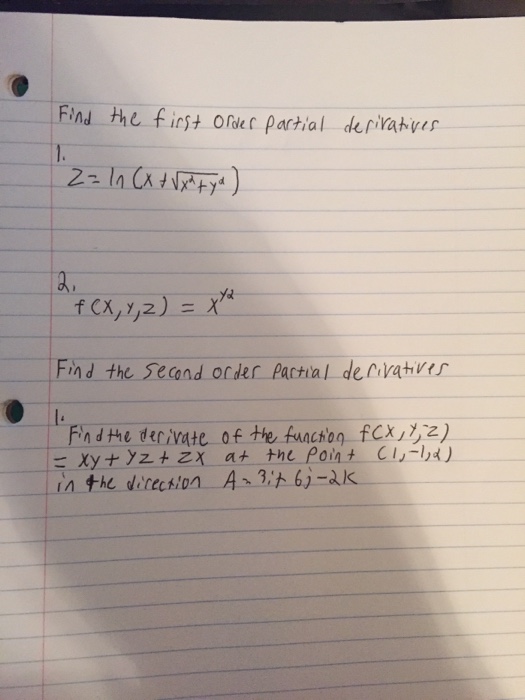 Find the first order partial derivatives
1.
Z = ln (x + √x²+y²)
2.
f(x,y,z) = x^yz
Find the second order partial derivatives
1.
Find the derivate of the function f(x,y,z)
= xy + yz + zx at the point (1,-1,2)
in the direction A = 3i + 6j - 2k